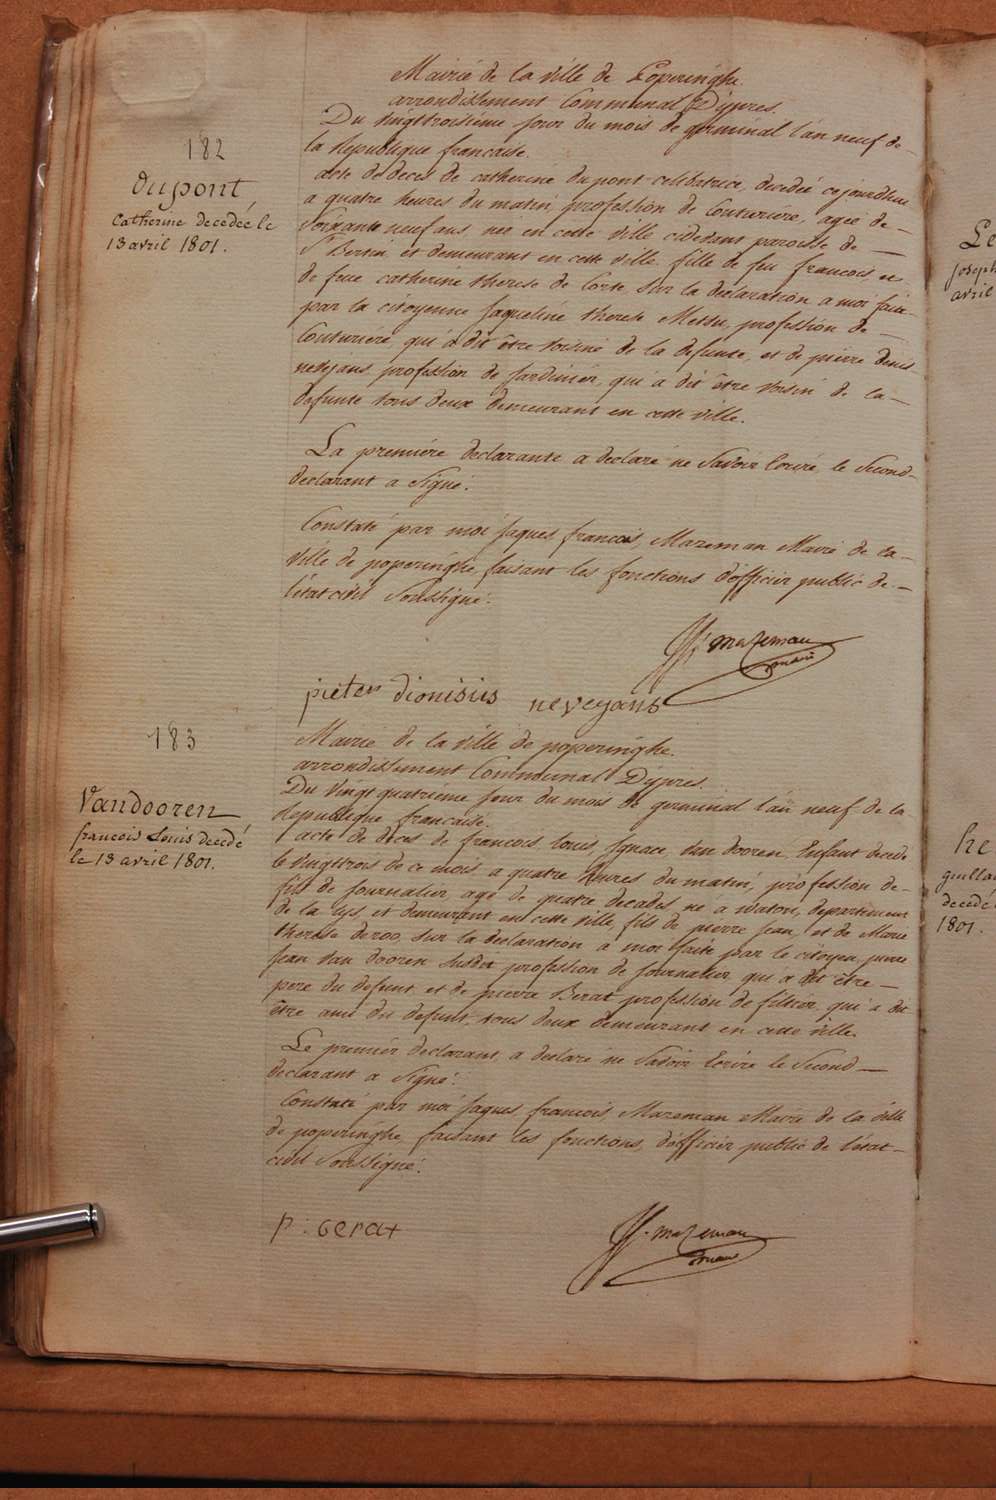 Mairie de la ville de Poperinghe.
arrondissement Communal D'ypres.
Du vingttroisieme jour du mois de germinal l'an neuf de-
la Republique francaise.
182
dupont,
Catherine decedée le
13 avril 1801.
acte de deces de catherine dupont celibatrice, decedée cejourdhui
a quatre heures du matin, profession de Couturiere, agee de-
soixante neuf ans, neé en cette ville cidevant paroisse de
St Bertin, et demeurant en cette ville, fille de feu francois, et
de feue catherine therese de Corte, sur la declaration a moi faite
par la citoyenne Jaqueline therese Messu, profession de-
Couturiere, qui a dit être voisine de la defunte, et de pierre denis
nevejans, profession de Jardinier, qui a dit être voisin de la-
defunte tous deux demeurant en cette ville.
La premiére declarante a declaré ne savoir Ecrire, le second-
declarant a signé.
Constaté par moi Jaques francois, Mazeman Maire de la-
ville de poperinghe, faisant les fonctions d'officier public de-
l'etat civil soussigné.
JJ: Mazeman
maire
pieter dionisius neveyans
183
Vandooren
francois Louis decedé
le 13 avril 1801.
Mairie de la ville de poperinghe.
arrondissement Communal D'ypres.
Du vingt quatrieme jour du mois de germinal l'an neuf de la-
Republique francaise.
acte de deces de francois, louis, Ignace van dooren, Enfant decede
le vingttrois de ce mois a quatre heures du matin, profession de-
fils de Journalier, agé de quatre decades né a watou, departement
de la lys, et demeurant en cette ville, fils de pierre Jean, et de Marie
therese deroo, sur la declaration a moi faite par le citoyen, pierre
Jean van dooren susdit profession de Journalier, qui a dit être-
pere du defunt, et de pierre Berat profession de filtier, qui a dit
être ami du defunt, tous deux demeurant en cette ville.
Le premiér declarant, a declaré ne savoir Ecrire le second-
declarant a signé.
Constaté par moi Jaques francois Mazeman Maire de la ville
de poperinghe, faisant les fonctions, d'officier public de l'état-
civil soussigné.
p: berat
JJ. Mazeman
maire
Le
joseph
avril
he
guillau
decedé
1801.